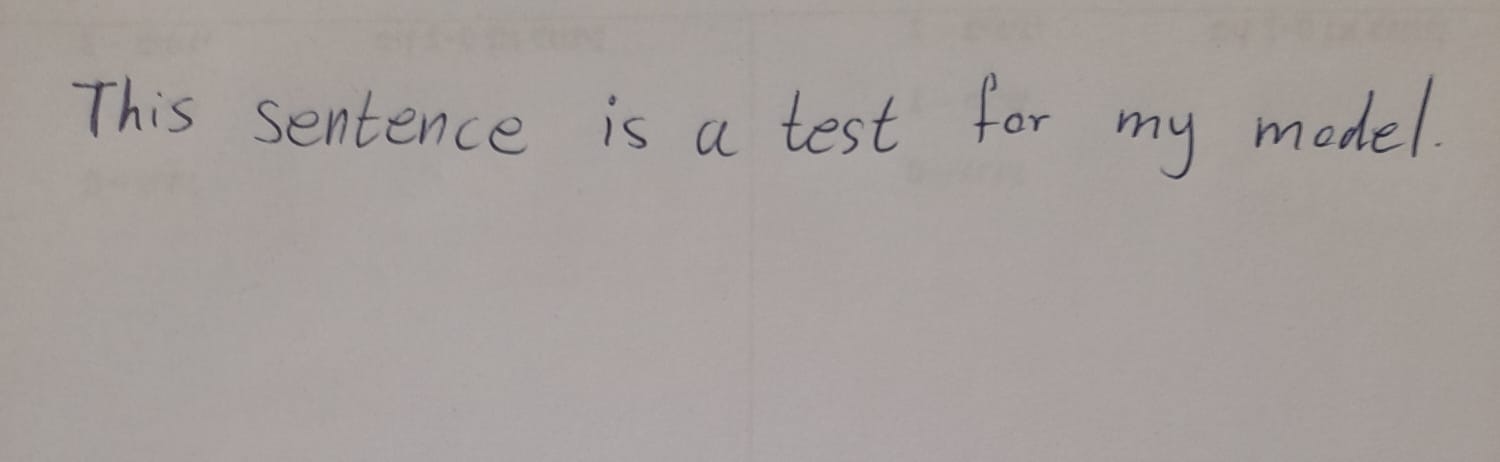 This sentence is a test for my model.